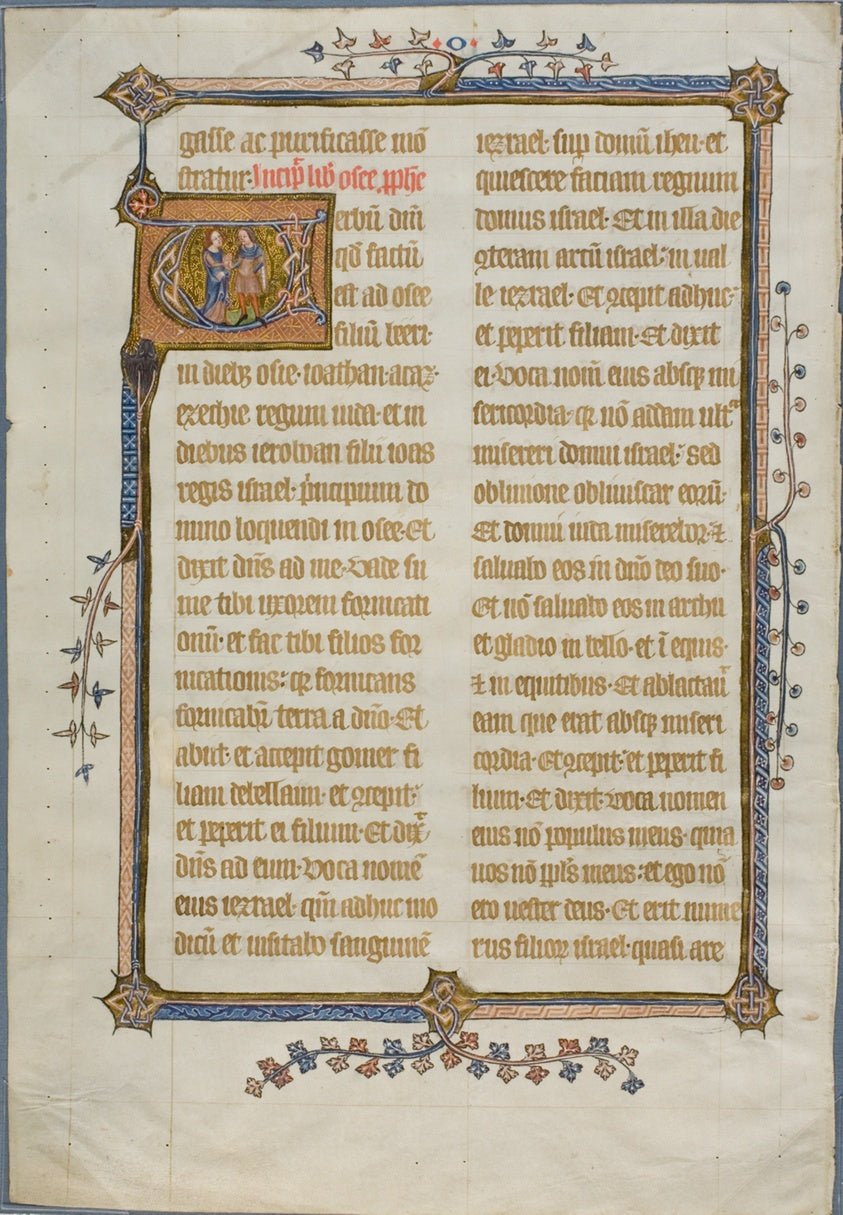 O
gasse ac purificasse mo᷃
stratur. Incip̃ lib̃ osee ꝓph̃e
Verbu᷃ dn̄i
qd̃ factu᷃
est ad osee
filiu᷃ beeri·
in dieb᷒ osie· ioathan· acaz·
ezechie regum iuda· et in
diebus ieroboan filii ioas
regis israel· p̃ncipium do
mino loquendi in osee· Et
dixit dn̄s ad me· Vade su
me tibi uxorem fornicati
onu᷃· et fac tibi filios for
nicationis: qꝛ fornicans
fornicabit᷑ terra a dn̄o· Et
abiit· et accepit gomer fi
liam debellaim· et ꝯcepit·
et peperit ei filium· Et dix̃
dn̄s ad eum· Voca nome᷃
eius iezrael· qm̃ adhuc mo
dicu᷃ et uisitabo sanguine᷃
iezrael· sup̱ domu᷃ iheu· et
quiescere faciam regnum
domus israel· Et in illa die
ꝯteram arcu᷃ israel· in ual
le iezrael· Et ꝯcepit adhuc·
et peperit filiam· Et dixit
ei· Voca nom̃ eius absqꝫ mi
sericordia· qꝛ no᷃ addam ult᷑ᵃ
misereri domui israel· sed
obliuione obliuiscar eoru᷃·
Et domui iuda miserebor· ⁊
saluabo eos in dn̄o deo suo·
Et no᷃ saluabo eos in archu
et gladio in bello· et i᷃ equis·
⁊ in equitibus· Et ablactau᷑
eam que erat absqꝫ miseri
cordia· Et ꝯcepit· et peperit fi
lium· Et dixit· voca nomen
eius no᷃ populus meus· quia
uos no᷃ ppl̃s meus: et ego no᷃
ero uester deus· Et erit nume
rus filioꝝ israel· quasi are